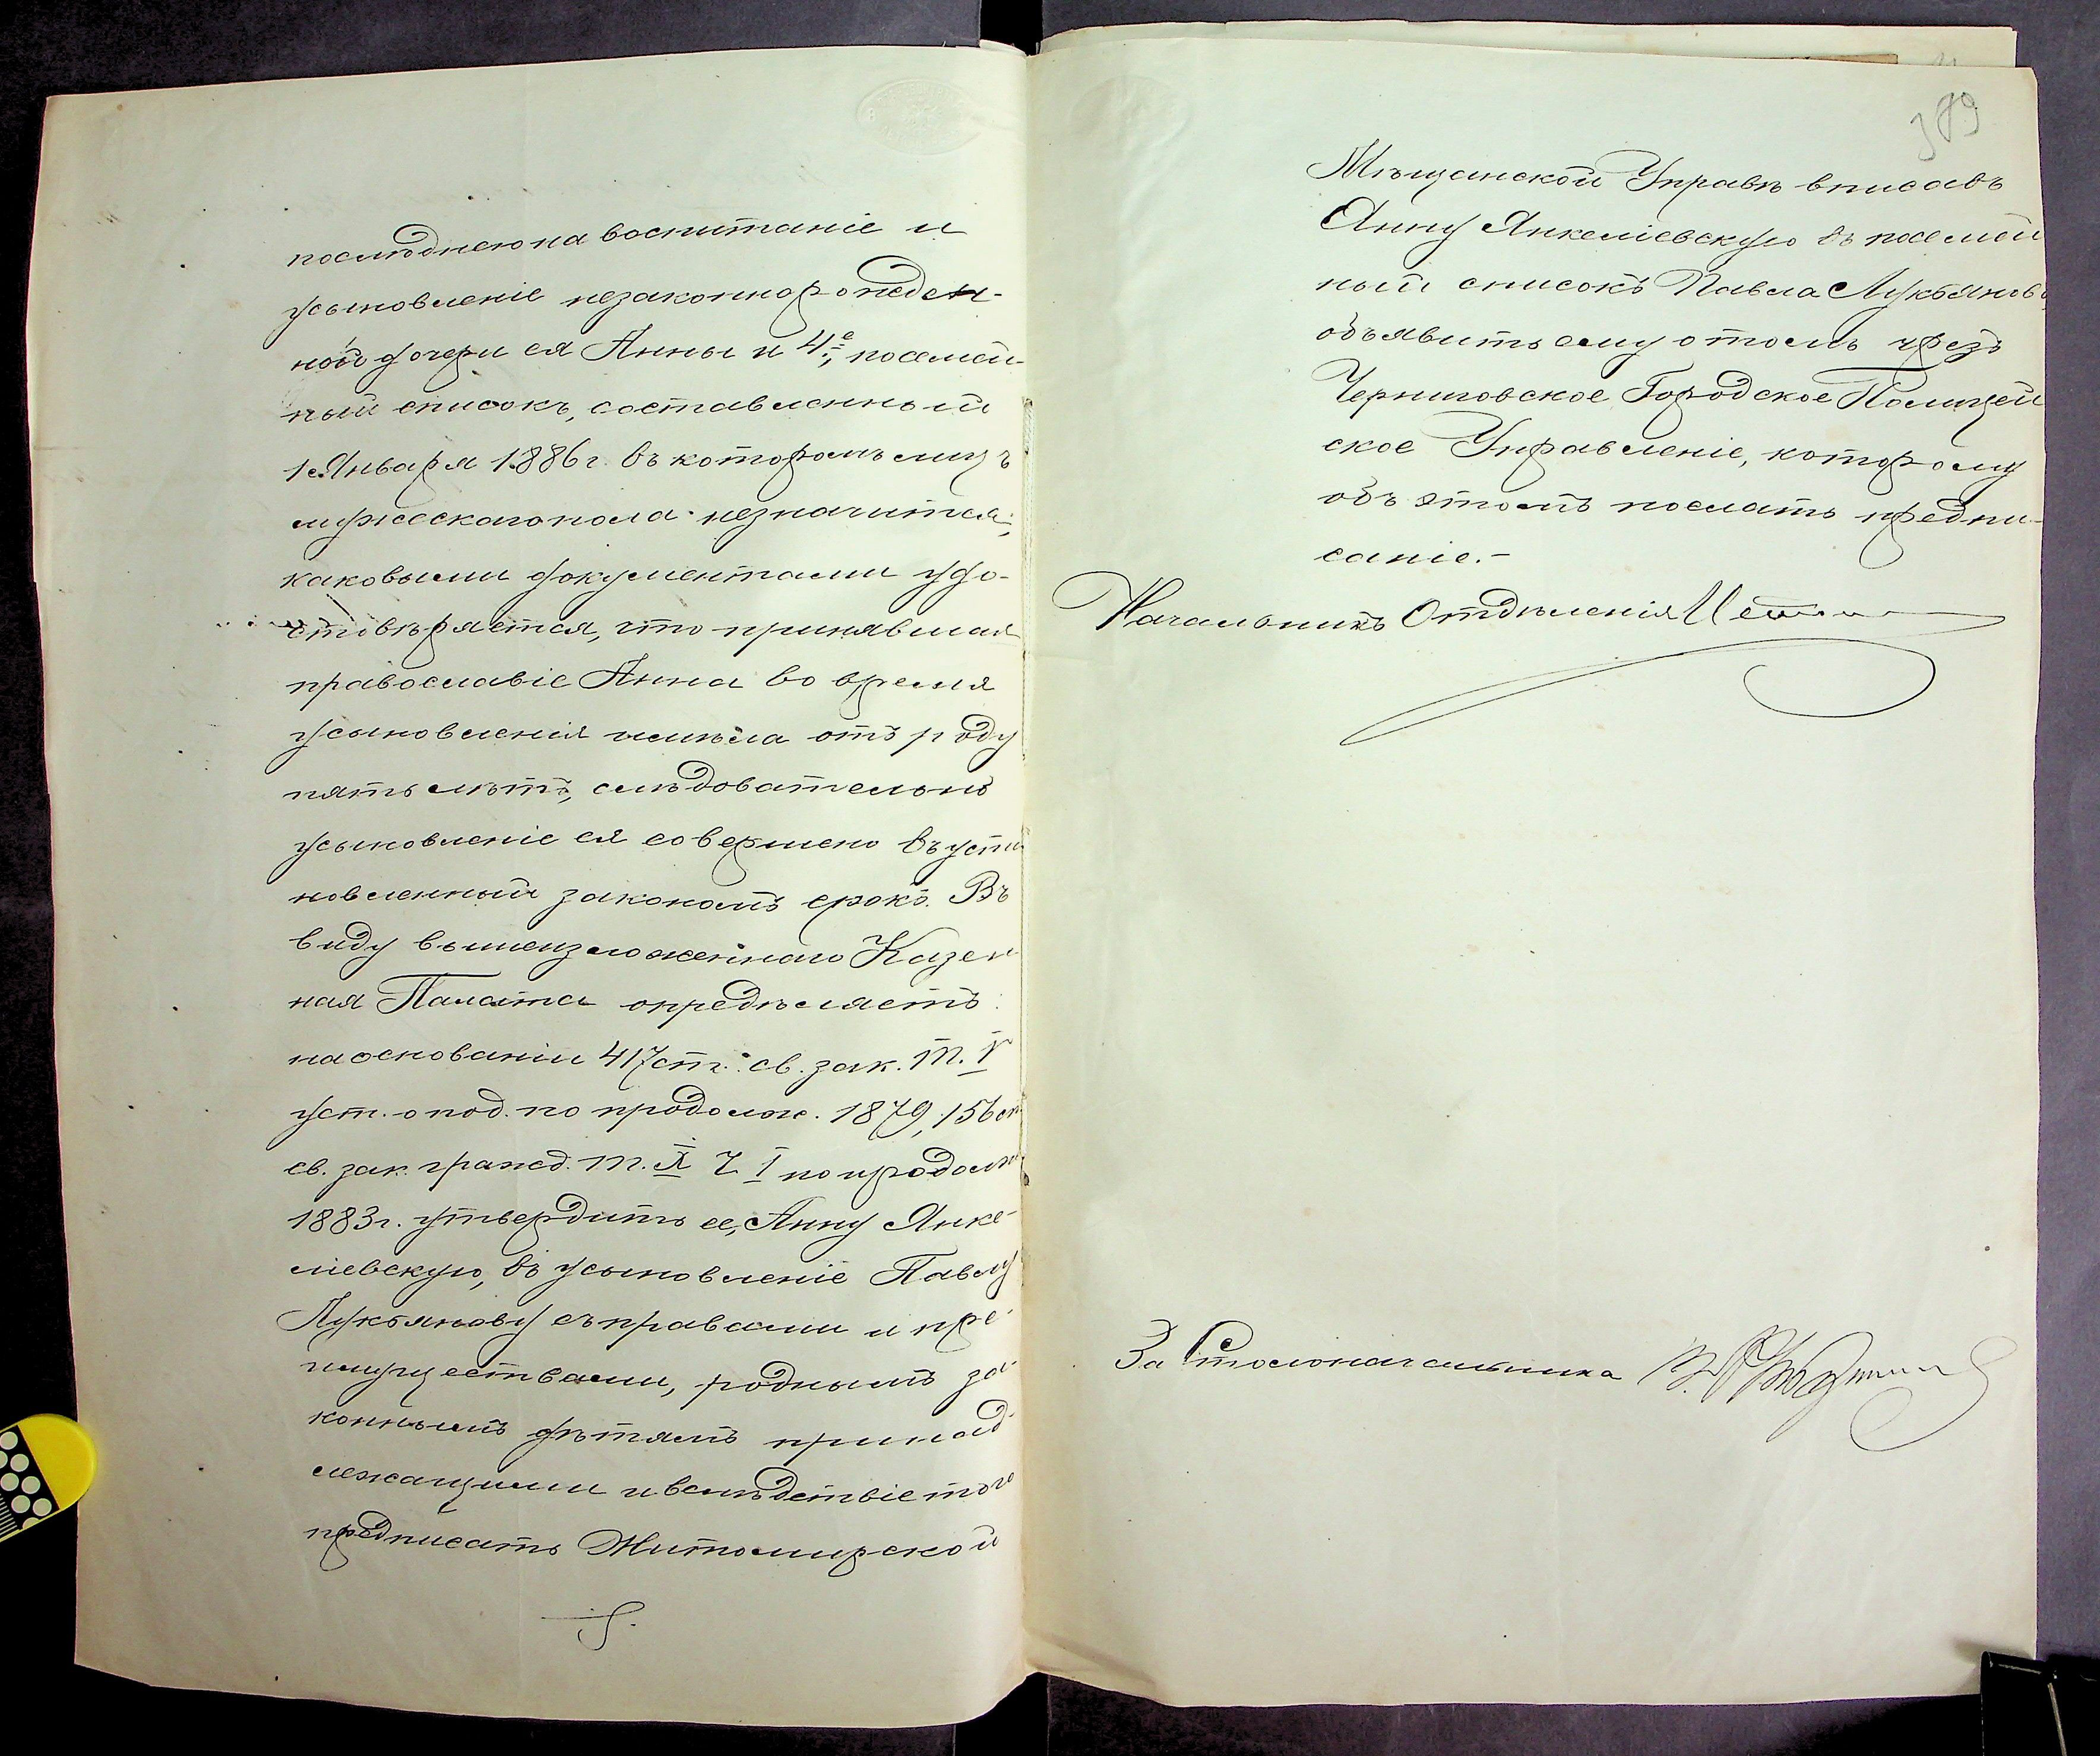 последнею на воспитаніе и
усыновленіе незаконнорожден-
ной дочери ея Анны и 4е, посемей-
ный списокъ, составленный
1 Января 1886 г. въ которомъ лицъ
мужескаго пола незначится;
каковыми документами удо-
стовѣряется, что принявшая
православіе Анна во время
усыновленія имѣла отъ роду
пять лѣтъ, слѣдовательно
усыновленіе ея совершено въ уста
новленный закономъ срокъ. Въ
виду вышеизложеннаго Казен
ная Палата опредѣляетъ:
на основаніи 417 ст. св. зак. т. V
уст. о под. по продолж. 1879, 156 ст
св. зак. гражд. т. X ч. I по продолж
1883 г. утвердить ее, Анну Янке-
ліевскую, въ усыновленіе Павлу
Лукьянову съ правами и пре-
имуществами, роднымъ за-
коннымъ дѣтямъ принад-
лежащими и вслѣдствіе того
предписать Житомирской
379
Мѣщанской Управѣ вписавъ
Анну Янкеліевскую въ посемей
ный списокъ Павла Лукьянова
объявить ему о томъ чрезъ
Черниговское Городское Полицей
ское Управленіе, которому
объ этомъ послать предпи-
саніе.-
Начальникъ Отдѣленія
За Столоначальника